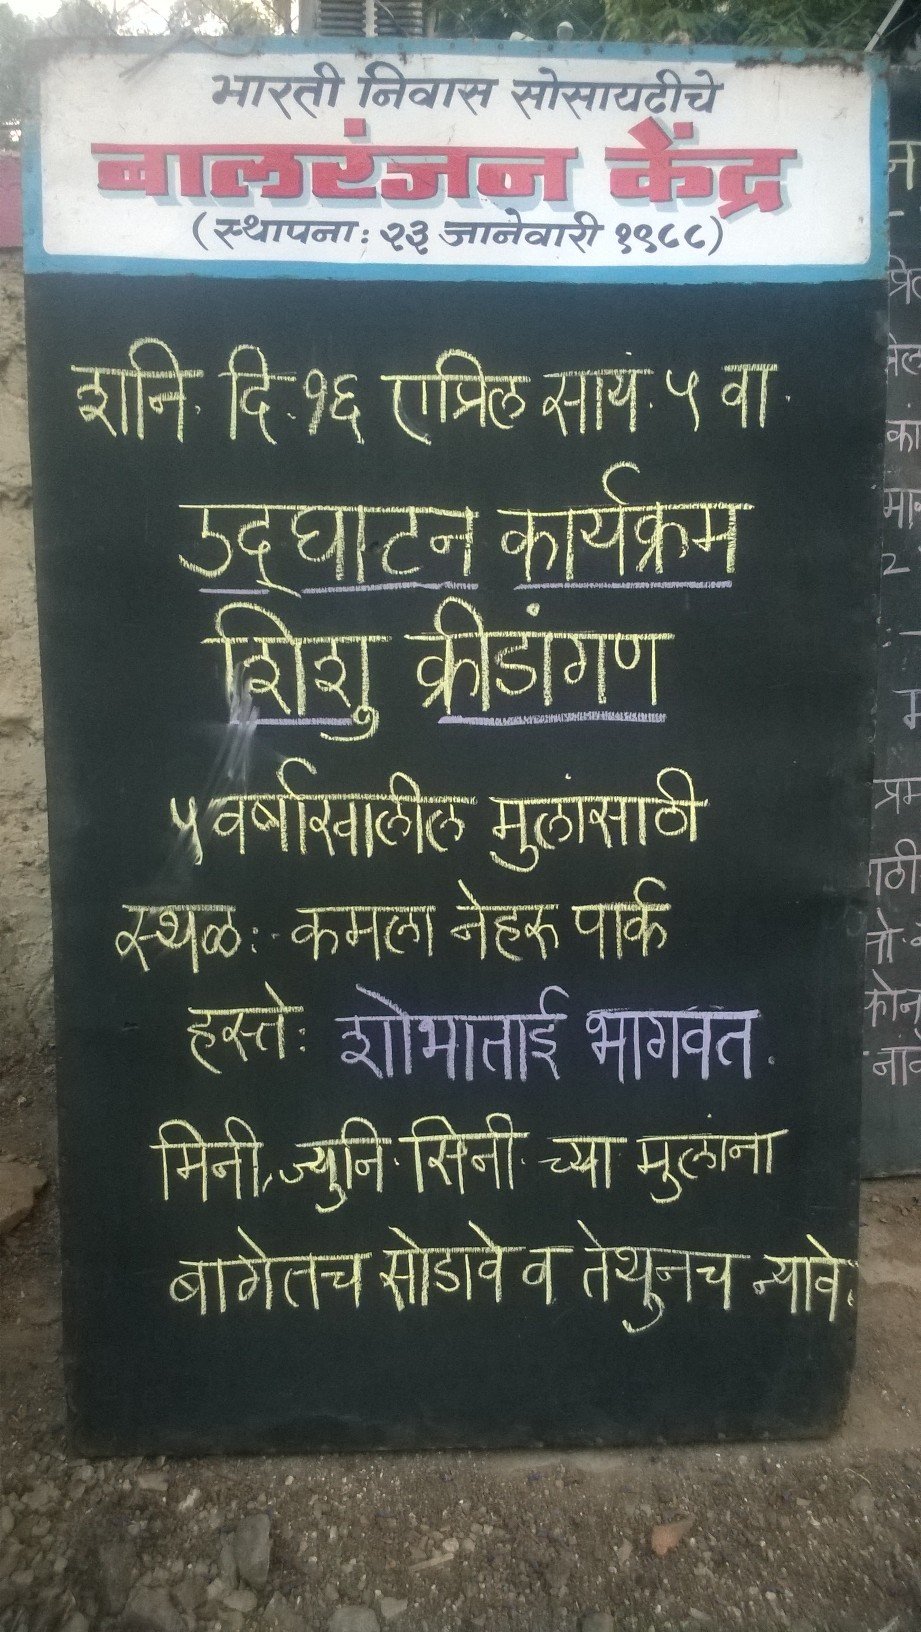 भारती निवास सोसायटीचे
बालरंजन केंद्र
(स्थापना: २३ जानेवारी १९८८)
शनि. दि. १६ एप्रिल सायं. ५ वा.
उद्घाटन कार्यक्रम
शिशु क्रीडांगण
५ वर्षाखालील मुलांसाठी
स्थळ:- कमला नेहरु पार्क
हस्ते: शोभाताई भागवत.
मिनी, ज्युनि. सिनी. च्या मुलांना
बागेतच सोडावे व तेथुनच न्यावे.